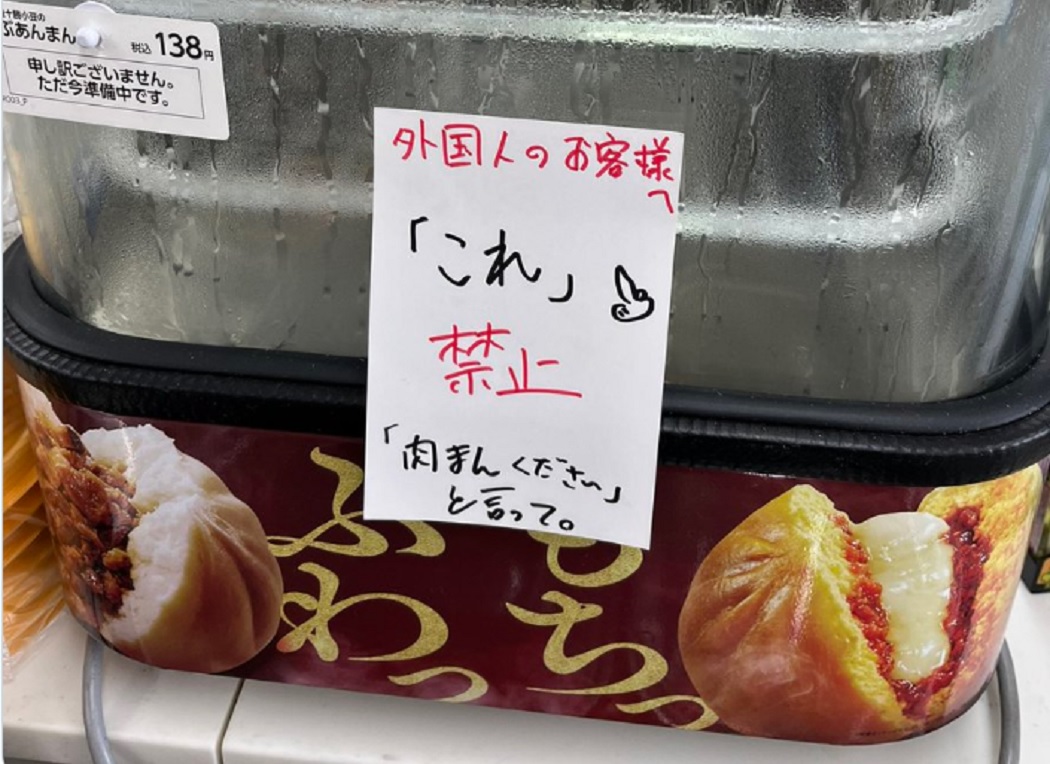 十勝小豆の
ぶあんまん
税込138円
申し訳ございません。
ただ今準備中です。
外国人のお客様
へ
「これ」
禁止
「肉まんください」
と言って。
ふわっ
もちっ